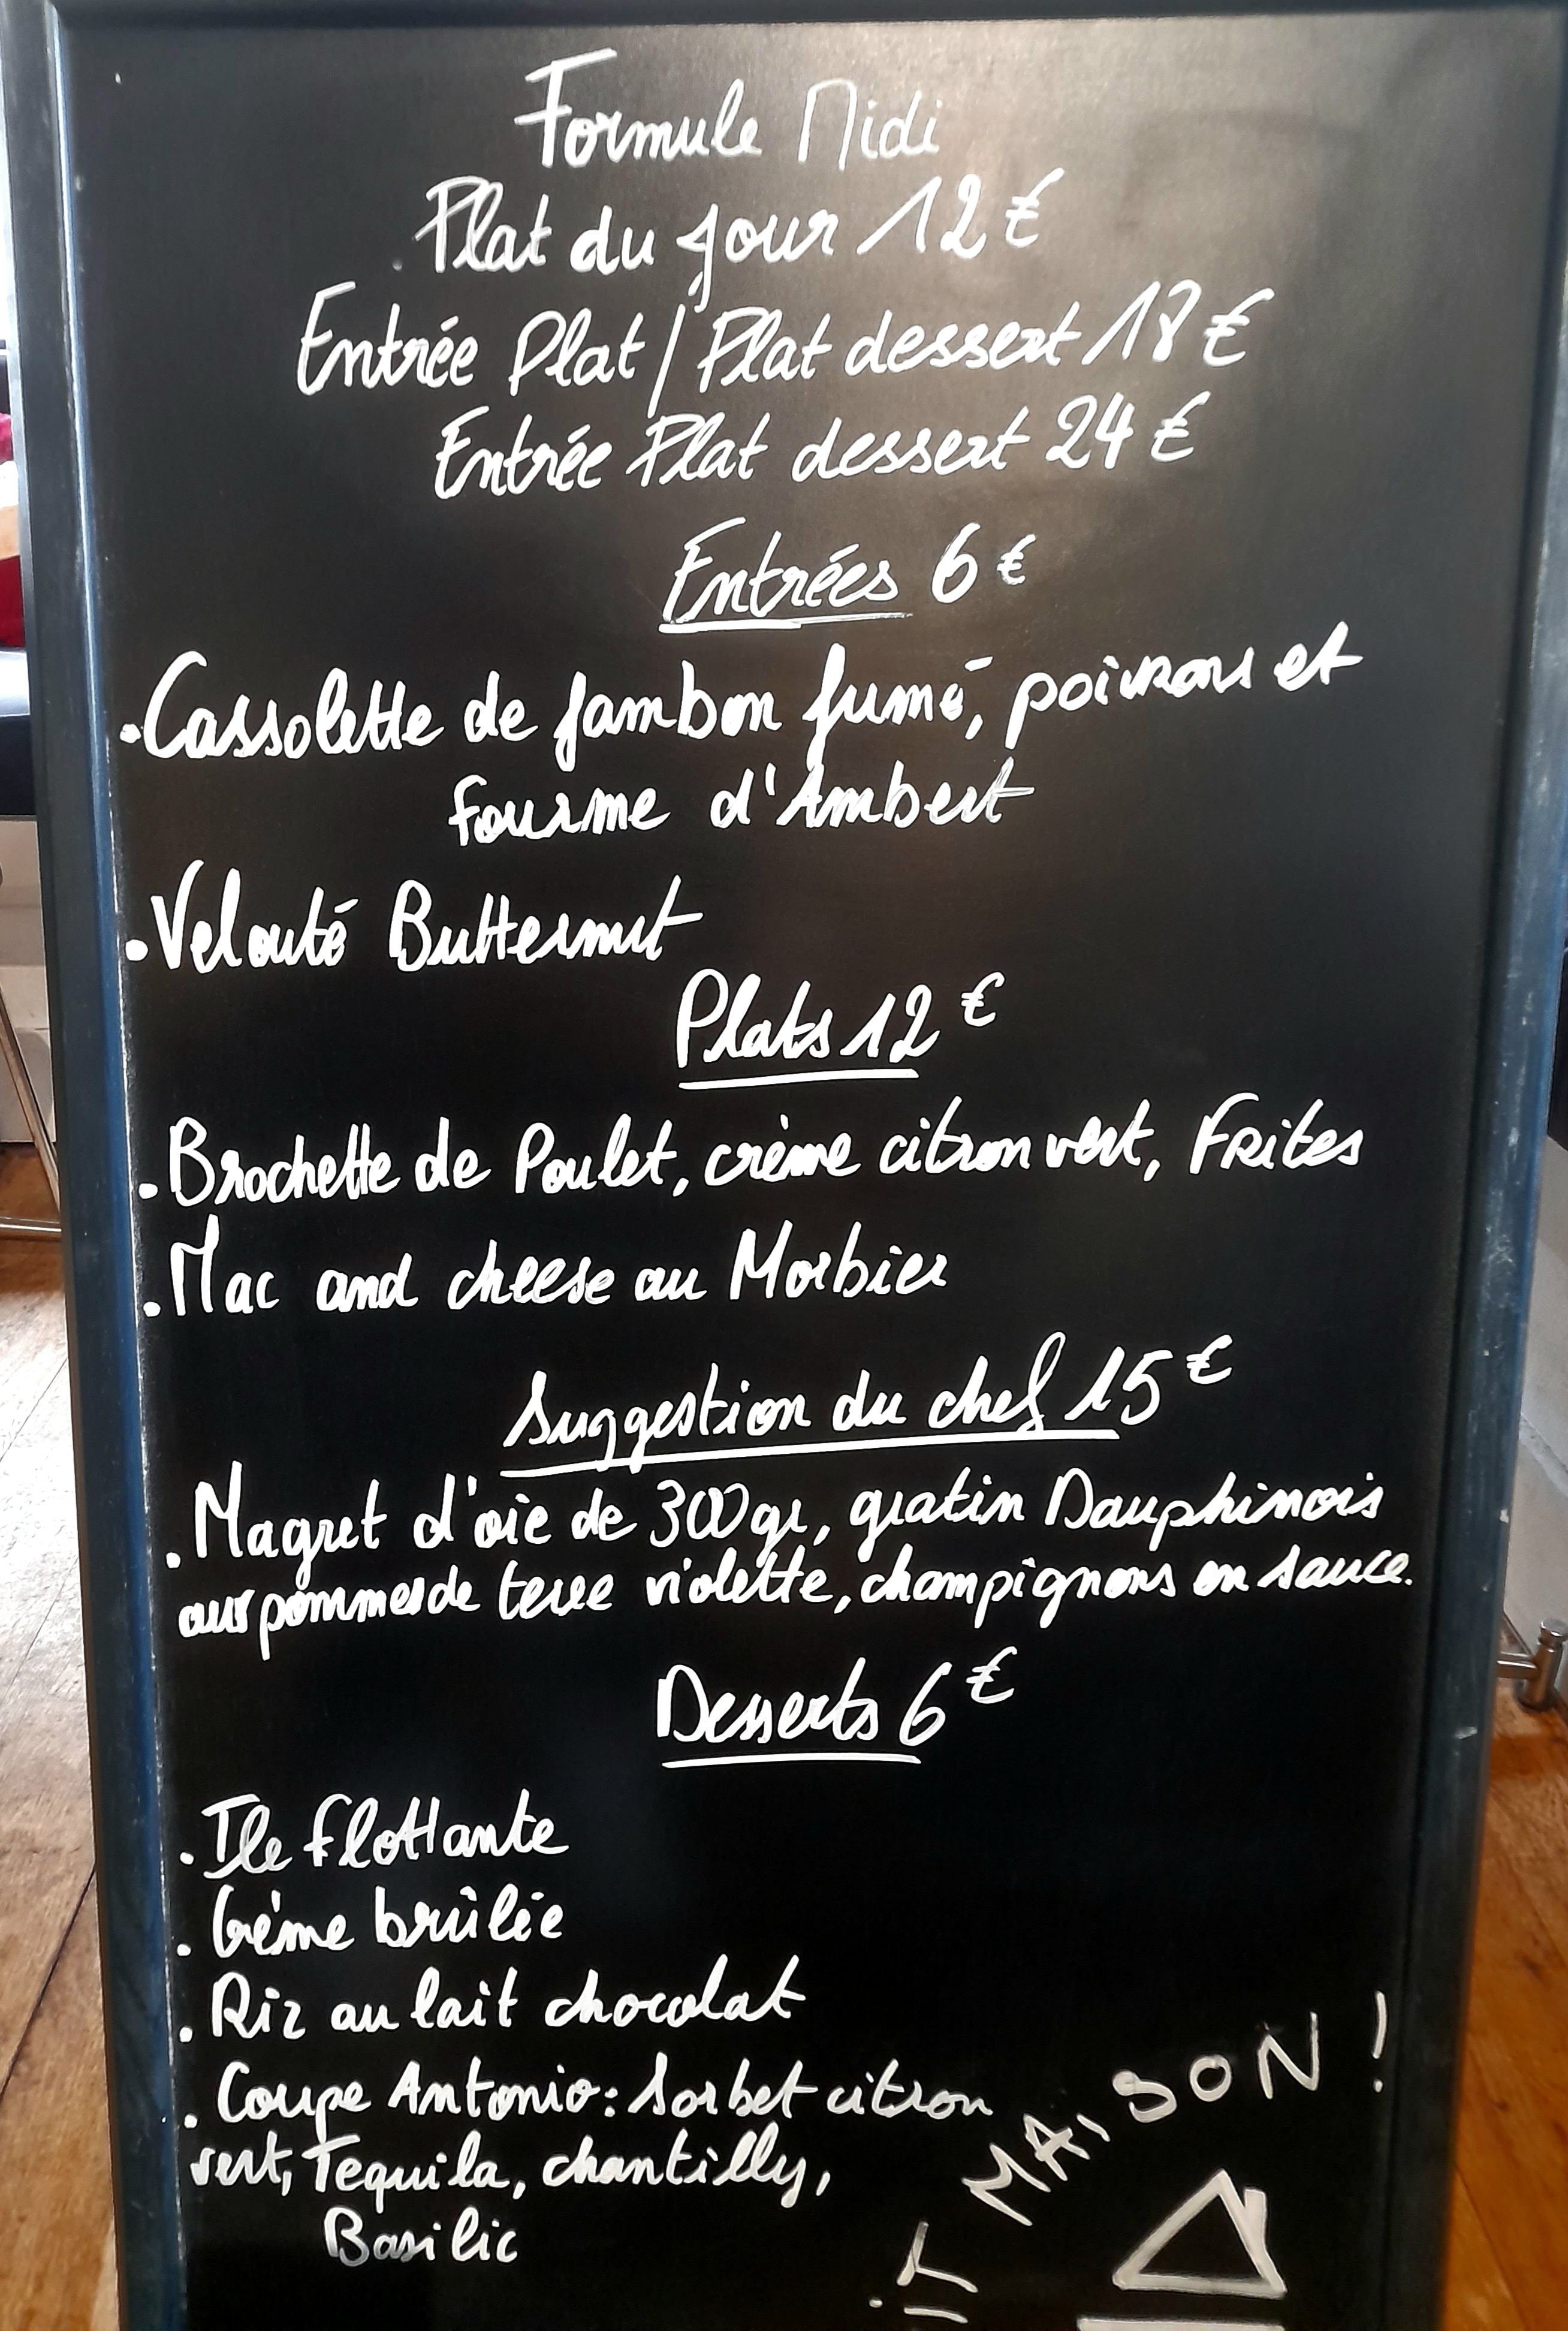 Formule Midi
Plat du jour 12 €
Entrée Plat / Plat dessert 18 €
Entrée Plat dessert 24 €
Entrées 6 €
• Cassolette de jambon fumé, poivrons et
fourme d'Ambert
• Velouté Butternut
Plats 12 €
• Brochette de Poulet, crème citron vert, Frites
• Mac and cheese au Morbier
Suggestion du chef 15 €
• Magret d'oie de 300gr, gratin Dauphinois
aux pommes de terre violette, champignons en sauce.
Desserts 6 €
• Ile flottante
• Crème brûlée
• Riz au lait chocolat
• Coupe Antonio : Sorbet citron
vert, Tequila, chantilly,
Basilic
iT MAiSON !